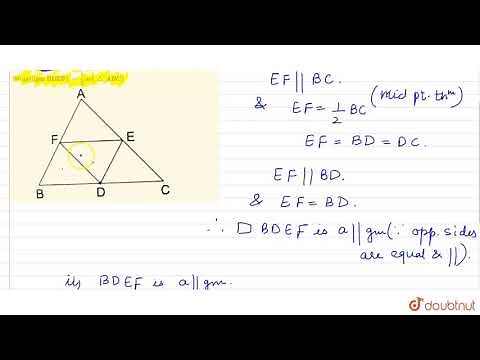 A
F
E
B
D
C
EF || BC.
& EF = 1/2 BC (mid pt. thm)
EF = BD = DC.
EF || BD.
& EF = BD.
∴ □ BDEF is a ||gm (∵ opp. sides
are equal & ||).
ii) BDEF is a ||gm.
doubtnut